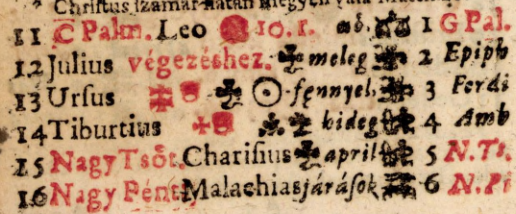 Christus
11 C Palm. Leo 10. 1. ab. 1 G Pal.
12 Julius végezéshez. meleg 2 Epiph
13 Ursus fęnnyel, 3 Ferdi
14 Tiburtius hideg 4 Amb
15 Nagy Tsöt. Charisius april 5 N. Ts.
16 Nagy Pént. Malachias járások 6 N. Pé